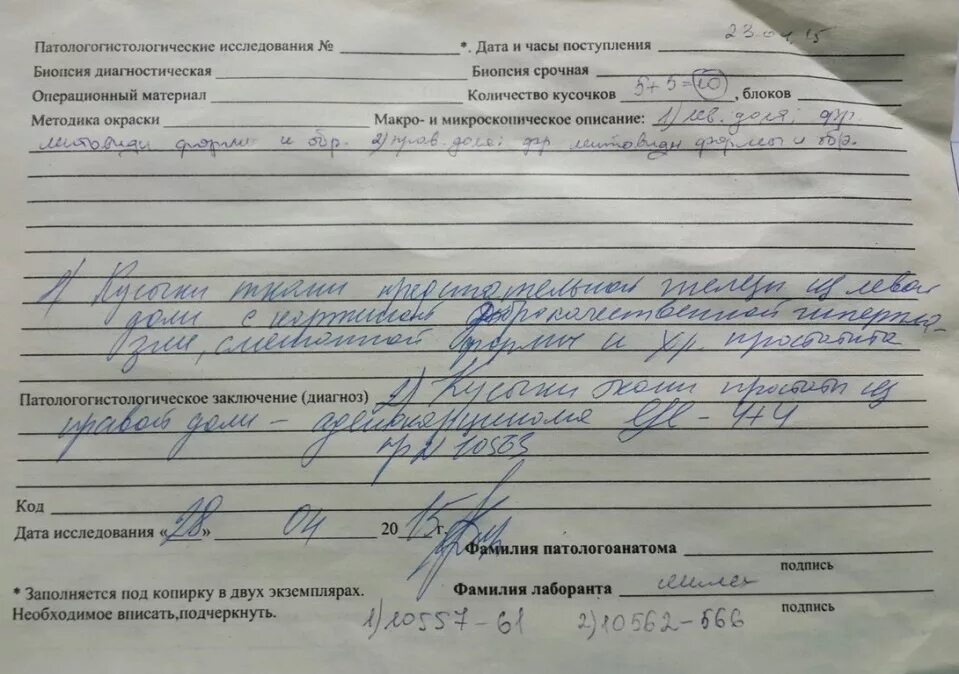 23 04 15
Патологогистологические исследования № ____ *. Дата и часы поступления
Биопсия диагностическая ____ Биопсия срочная
Операционный материал ____ Количество кусочков 5+5=10, блоков
Методика окраски ____ Макро- и микроскопическое описание: 1) лев. доля; фр.
формы и обр. 2) прав. доля; фр формы и обр.
1) Кусочки ткани предстательной железы из левой
доли с картиной доброкачественной гиперпла-
зии, смешанной формы и хр. простатита
Патологогистологическое заключение (диагноз) 2) Кусочки ткани простаты из
правой доли – аденокарцинома 4+4
10563
Код
Дата исследования «28» 04 2015г.
Фамилия патологоанатома
подпись
* Заполняется под копирку в двух экземплярах. Фамилия лаборанта
Необходимое вписать,подчеркнуть. подпись
1) 10557-61 2) 10562-566